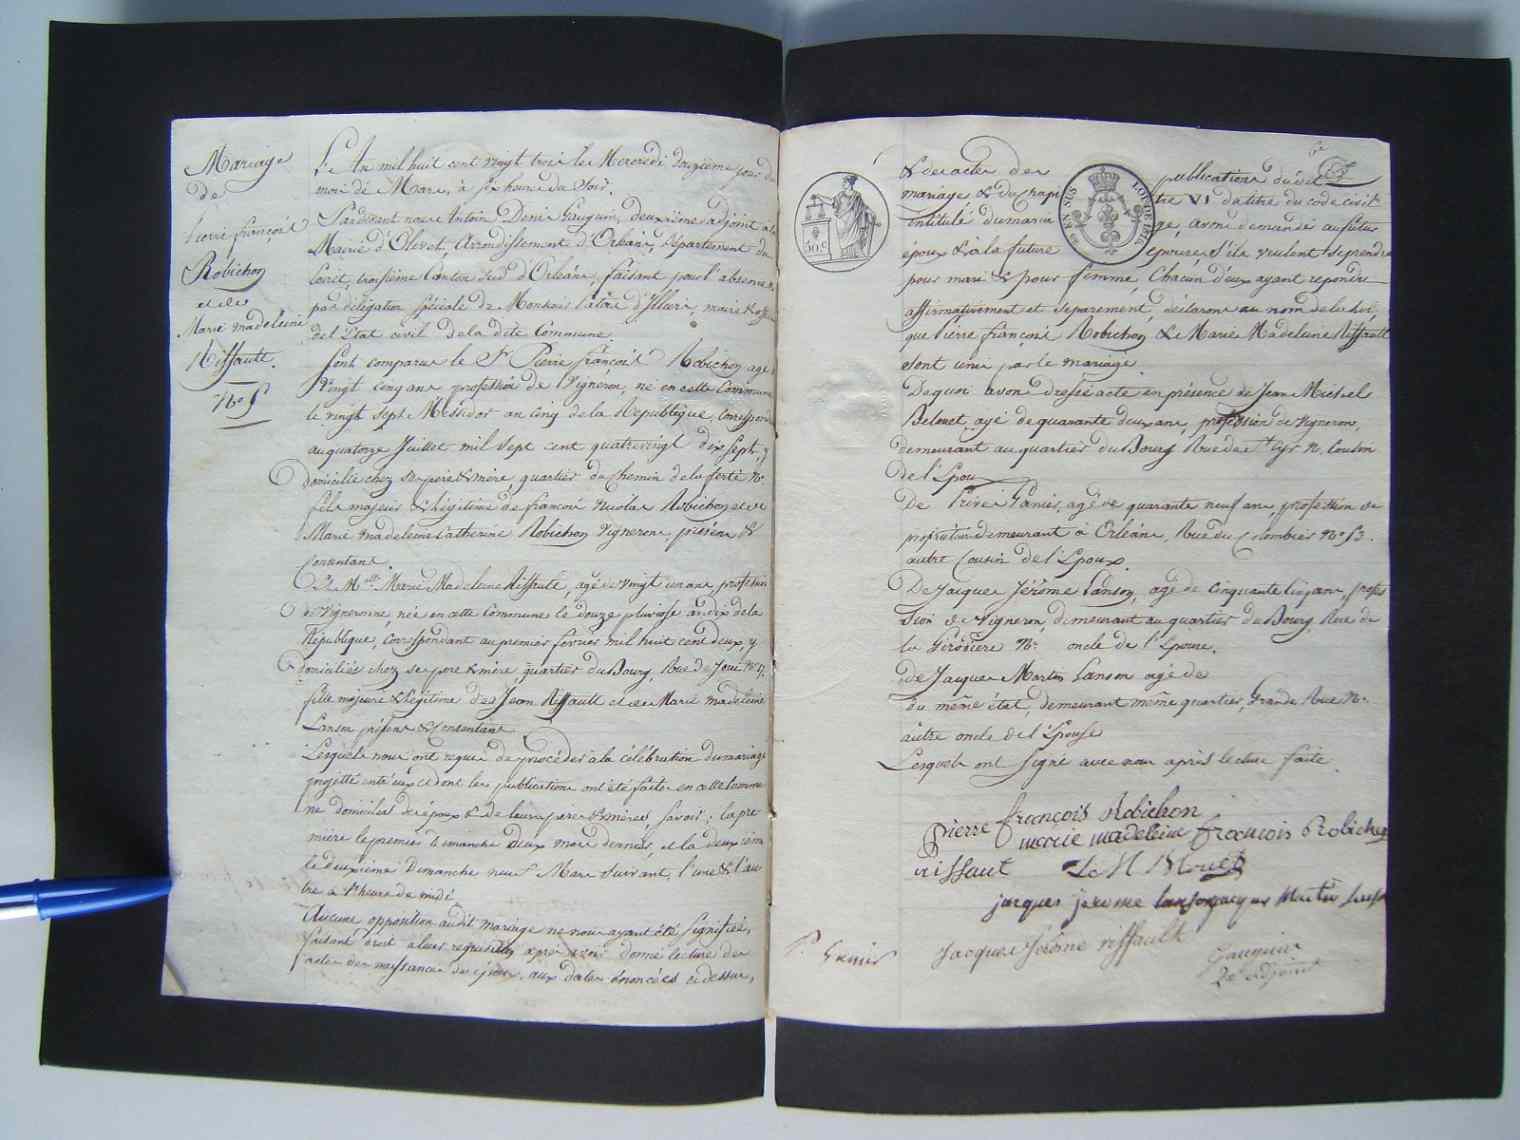 Mariage
de
Pierre françois
Robichon
et de
Marie madeleine
Riffault.
N° 5
L'An mil huit cent vingt trois le Mercredi douzieme jour du
mois de Mars, à six heures du Soir.
Pardevant nous Antoin Denis Gauguin, deuxième adjoint à la
Mairie d'Olivet, Arrondissement d'Orléans, Département du
Loiret, troisième Canton Sud d'Orléans, faisant pour l'absence &
par délégation spéciale de Monsieur maire & off
de l'Etat civil de la dite Commune
Sont comparus le Sr Pierre françois Robichon agé
vingt cinq ans profession de Vigneron, né en cette Commune
le vingt sept Messidor an cinq de la République, Correspond
au quatorze Juillet mil sept cent quatrevingt dix sept, y
domicilié chez ses pere & mère, quartier du Chemin de la ferté N°
fils majeur & légitime de françois Nicolas Robichon et de
Marie madeleine Catherine Robichon Vignerons, présens &
Consentans.
Et Mlle Marie Madeleine Riffault, agée de Vingt un ans profession
de Vigneronne, née en cette Commune le douze pluviose an dix de la
République, correspondant au premier fevrier mil huit cent deux, y
domiciliée chez ses pere & mère, quartier du Bourg, Rue de
fille majeure & légitime de Jean Riffault et de Marie madeleine
Lanson présens & Consentans
Lesquels nous ont requis de procéder à la célébration du mariage
projetté entr'eux et dont les publications ont été faites en cette Commu
ne domicile des époux & de leurs peres & mères, Savoir; la pre
mière le premier Dimanche deux mars dernier, et la deuxième
le deuxième Dimanche neuf Mars Suivant, l'une & l'au
tre à l'heure de midi.
Aucune opposition audit mariage ne nous ayant été Signifiée,
faisant droit à leur requisition après avoir donné lecture des
actes de naissances des époux, aux dates énoncées ci dessus,
& des actes des publications du dit
mariage & du Chapi tre VI du titre du code civil
intitulé du maria ge, avons demandé au futur
époux & à la future épouse, s'ils veulent se prendre
pour mari & pour femme, Chacun d'eux ayant répondu
affirmativement et séparément, déclarons au nom de la loi,
que Pierre françois Robichon & Marie Madeleine Riffault
sont unis par le mariage.
De quoi avons dressé acte en présence de Jean Michel
agé de quarante deux ans, profession de Vigneron,
demeurant au quartier du Bourg Rue de St Cyr N. Cousin
de l'Epoux
De agé de quarante neuf ans, profession de
propriétaire demeurant à Orléans, Rue du Colombier N° 53.
autre Cousin de l'Epoux.
De Jacques Jérôme Lanson, agé de Cinquante Cinq ans, profes
sion de Vigneron, demeurant au quartier du Bourg, Rue de
la N° oncle de l'Epouse.
de Jacques Martin Lanson agé de
du même état, demeurant même quartier, Grande Rue N°
autre oncle de l'Epouse
Lesquels ont Signé avec nous après lecture faite.
50 c.
EN SUS
LOI DE 1816
pierre françois Robichon
marie madeleine françois Robichon
riffaut
jacques jerome lanson jacques Martin
Jacques Jérôme riffault
Gauguin
2e adjoint